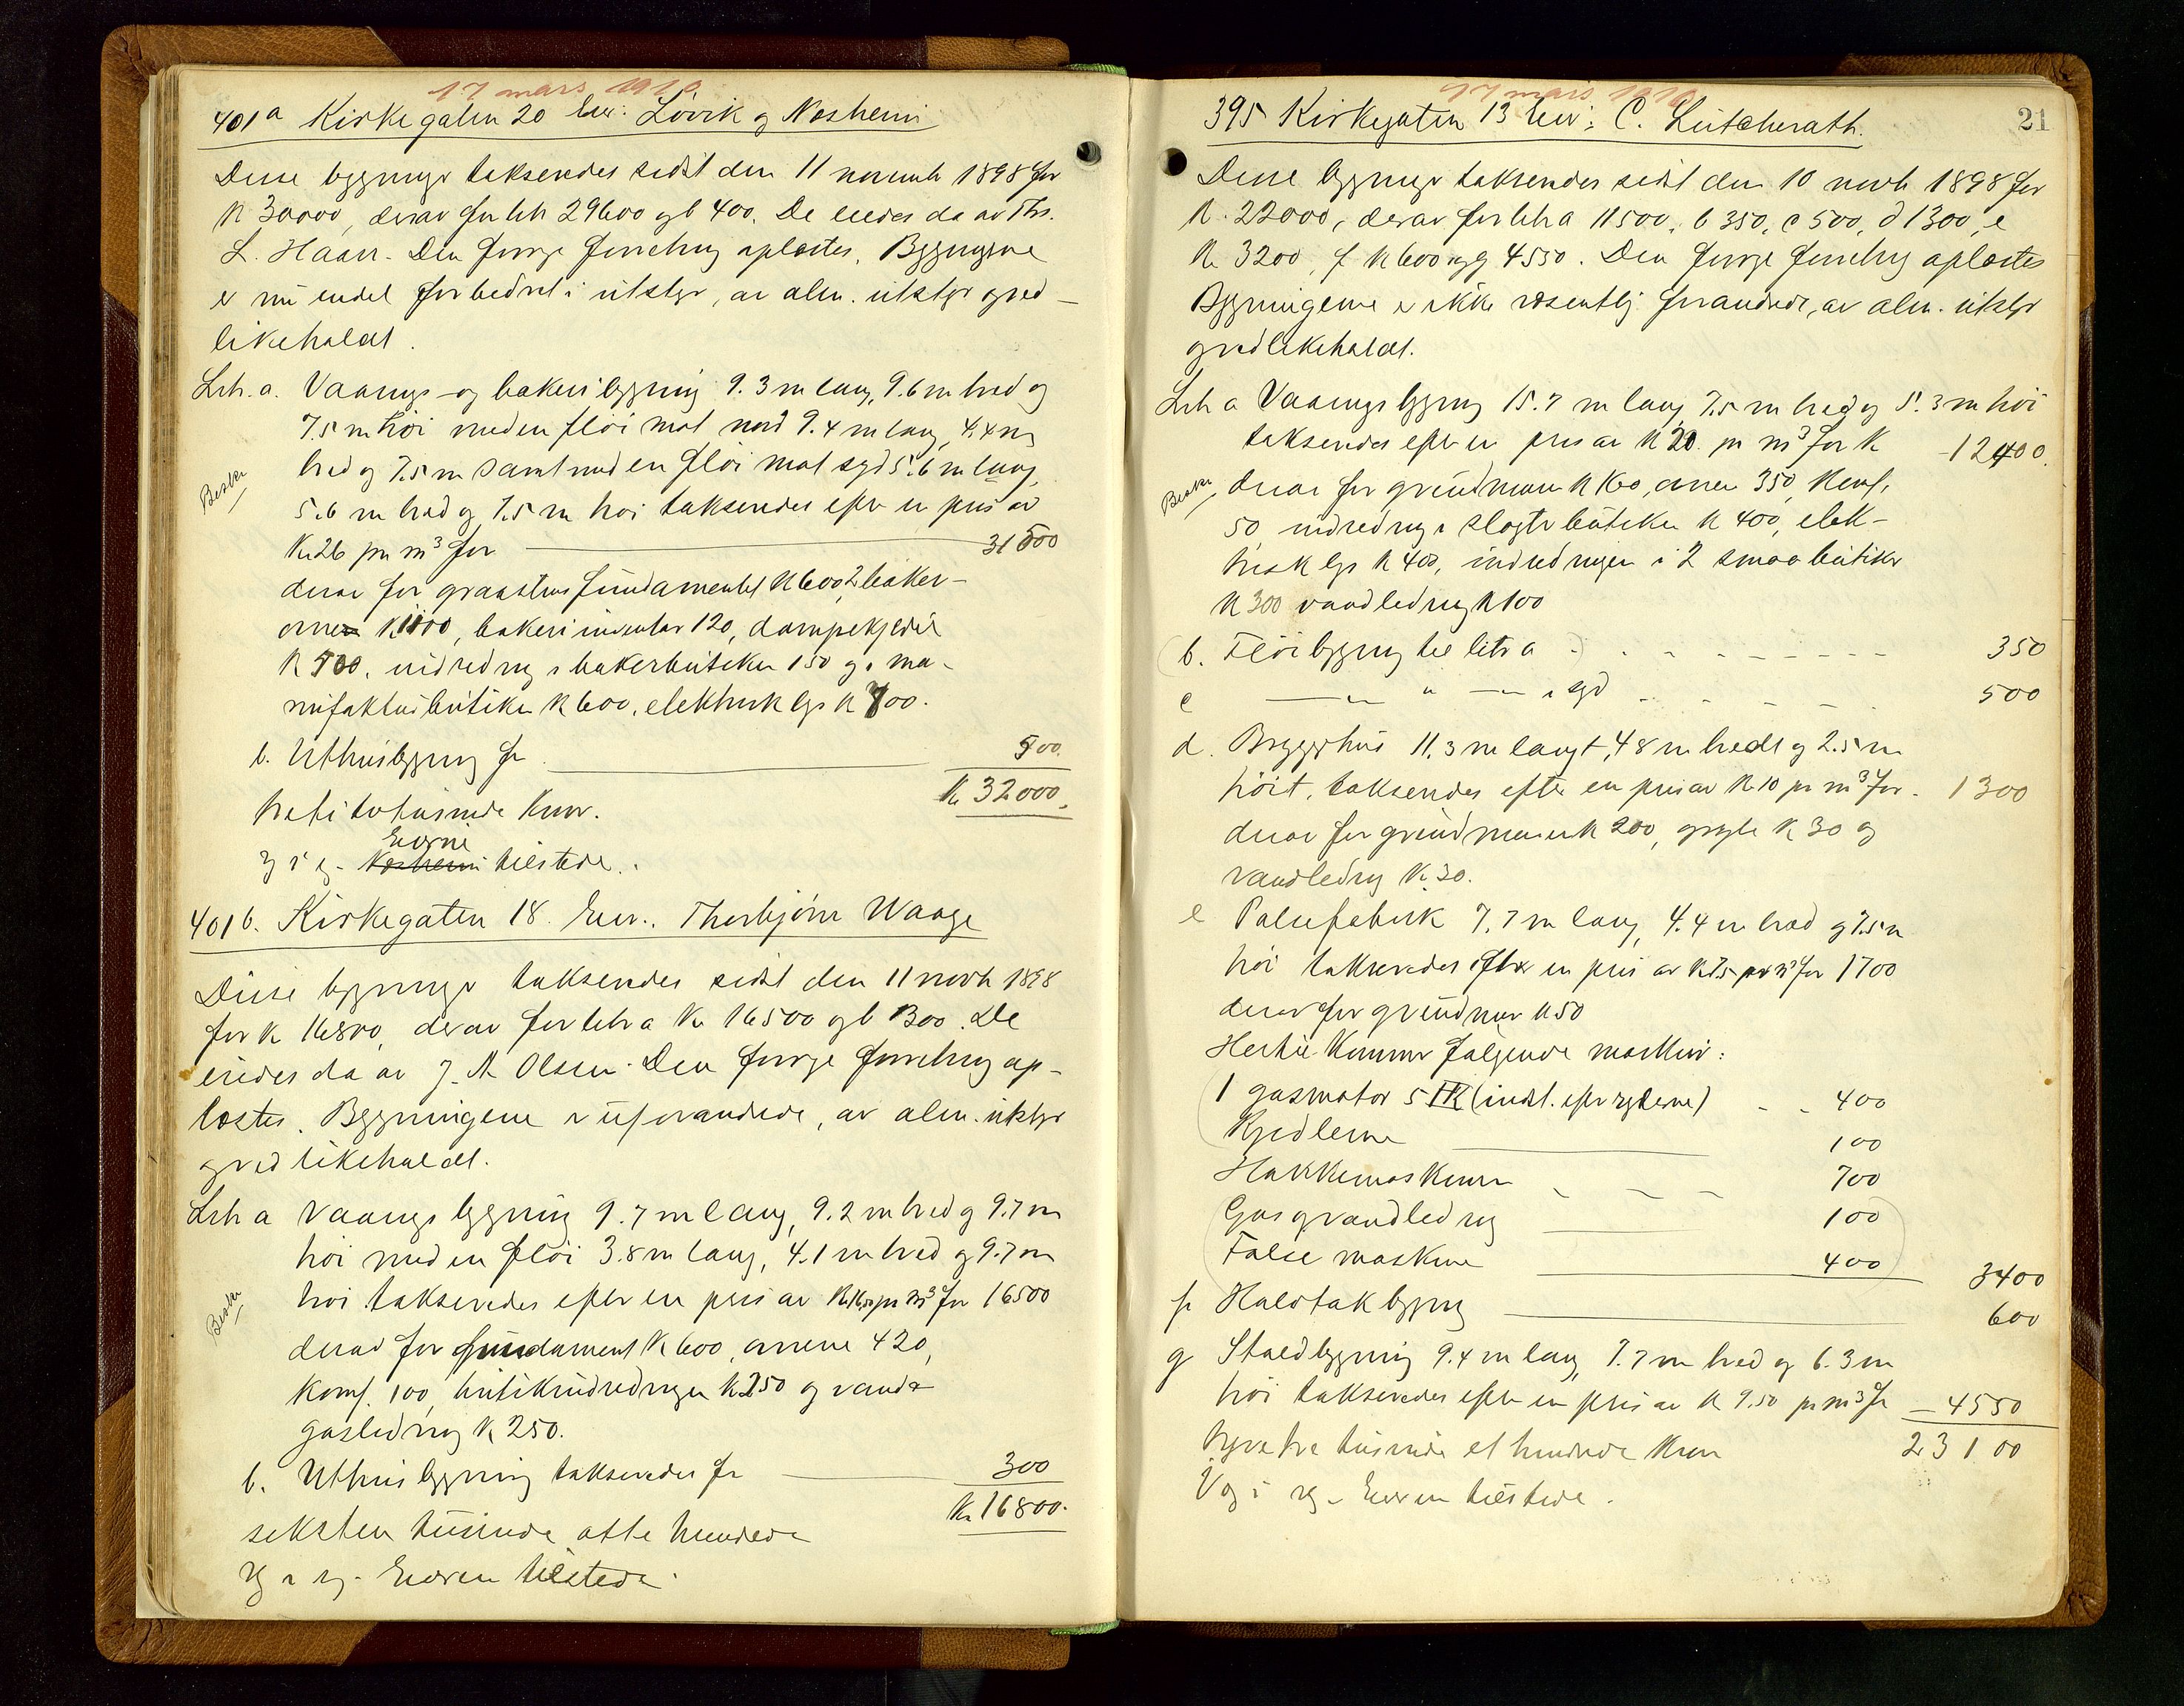 17 mars 1910
401a Kirkegaten 20 Eier: Lövik og Nosheim
Disse bygninger takseredes sidst den 11 novembr 1898 for
Kr 30000, derav for litr 29600 og b 400. De eiedes da av Ths.
L. Haarr. Den forrige forretning oplæstes. Bygningerne
er nu endel forbedret i utstyr, av alm. utstyr og ved-
likeholdt.
Litr. a. Vaanings- og bakeribygning 9.3 m lang, 9.6 m bred og
7.5 m höi med en flöi mot nord 9.4 m lang, 4.4 m
bred og 7.5 m samt med en flöi mot syd 5.6 m lang,
5.6 m bred og 7.5 m höi takseredes efter en pris av
Kr. 26 pr m3 for 31500
derav for graastensfundamentet K 600, 2 baker-
ovner K 1100, bakeriinventar 120, dampkjedel
K 500, indredning i bakerbutiken 150 og i ma-
nufakturbutiken K 600, elektrisk lys K 700.
b. Uthusbygning for 500.
Kr 32000.
tretitotusinde kroner.
Eierne
V. i eg. Nosheim tilstede.
401b. Kirkegaten 18. Eier: Thorbjörn Waage
Disse bygninger takseredes sidst den 11 novb 1898
for K 16800, derav for litr a Kr 16500 og b 300. De
eiedes da av J. A. Olsen. Den forrige forretning op-
læstes. Bygningene er uforandrede, av alm. utstyr
og vedlikeholdt.
Litr a Vaaningsbygning 9.7 m lang, 9.2 m bred og 9.7 m
höi med en flöi 3.8 m lang, 4.1 m bred og 9.7 m
höi takseredes efter en pris av Kr. 16,50 pr m3 for 16500
derav for fundament K 600, ovnene 420,
komf. 100, butikindredningen K 250 og vand &
gasledning K 250.
b. Uthusbygning takseredes for 300
Kr 16800.
seksten tusinde otte hundrede
Eieren tilstede.
17 mars 1910
21
395 Kirkegaten 13 Eier: C. Lütcherath.
Disse bygninger takseredes sidst den 10 novb 1898 for
K. 22000, derav for litra a 11500, b 350, c 500, d 1300, e
K. 3200, f K 600 og g 4550. Den forrige forretning oplæstes
Bygningerne er ikke væsentlig forandrede, av alm. utstyr
og vedlikeholdt.
Litr a Vaaningsbygning 15.7 m lang, 7.5 m bred og 5.3 m höi
takseredes efter en pris av K 20. pr m3 for K 12400.
derav for grundmuren K 160, ovnen 350, komf.
50, indredning i slagterbutiken K 400, elek-
trisk lys K 400, indredningen i 2 smaa butiker
K 300 vandledning K 100
b. Flöibygning til litr a 350
c — " — i syd 500
d. Bryggerhus 11.3 m langt, 4.8 m bredt og 2.5 m
höit, takseredes efter en pris av K. 10 pr m3 for 1300
derav for grundmuren K 200, gryte K 30 og
vandledning K. 30.
e Pølsefabrik 7.7 m lang, 4.4 m bred og 7.5 m
höi takseredes efter en pris av K 7,5 pr m3 for 1700
derav for grundmur K 50
Hertil kommer følgende maskiner:
1 gasmotor 5 HK (indst. efter eierne) 400
Kjedlerne 100
Hakkemaskinen 700
Gas og vandledning 100
False maskine 400
3400
f Halvtakbygning 600
g Staldbygning 9.4 m lang, 7.7 m bred og 6.3 m
höi takseredes efter en pris av K 9.50 pr m3 for 4550
tyve tre tusinde et hundrede kroner 23100
V og i eg. Eieren tilstede.